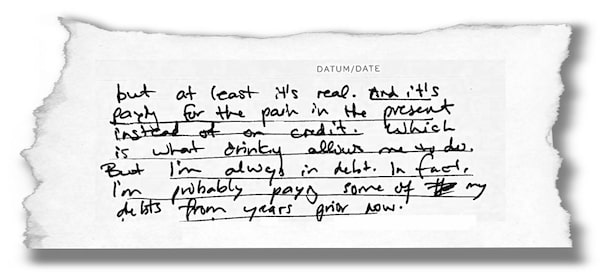 DATUM/DATE
but at least it's real. And it's
paying for the pain in the present
instead of on credit. Which
is what drinking allows me to do.
But I'm always in debt. In fact,
I'm probably paying some of my
debts from years prior now.